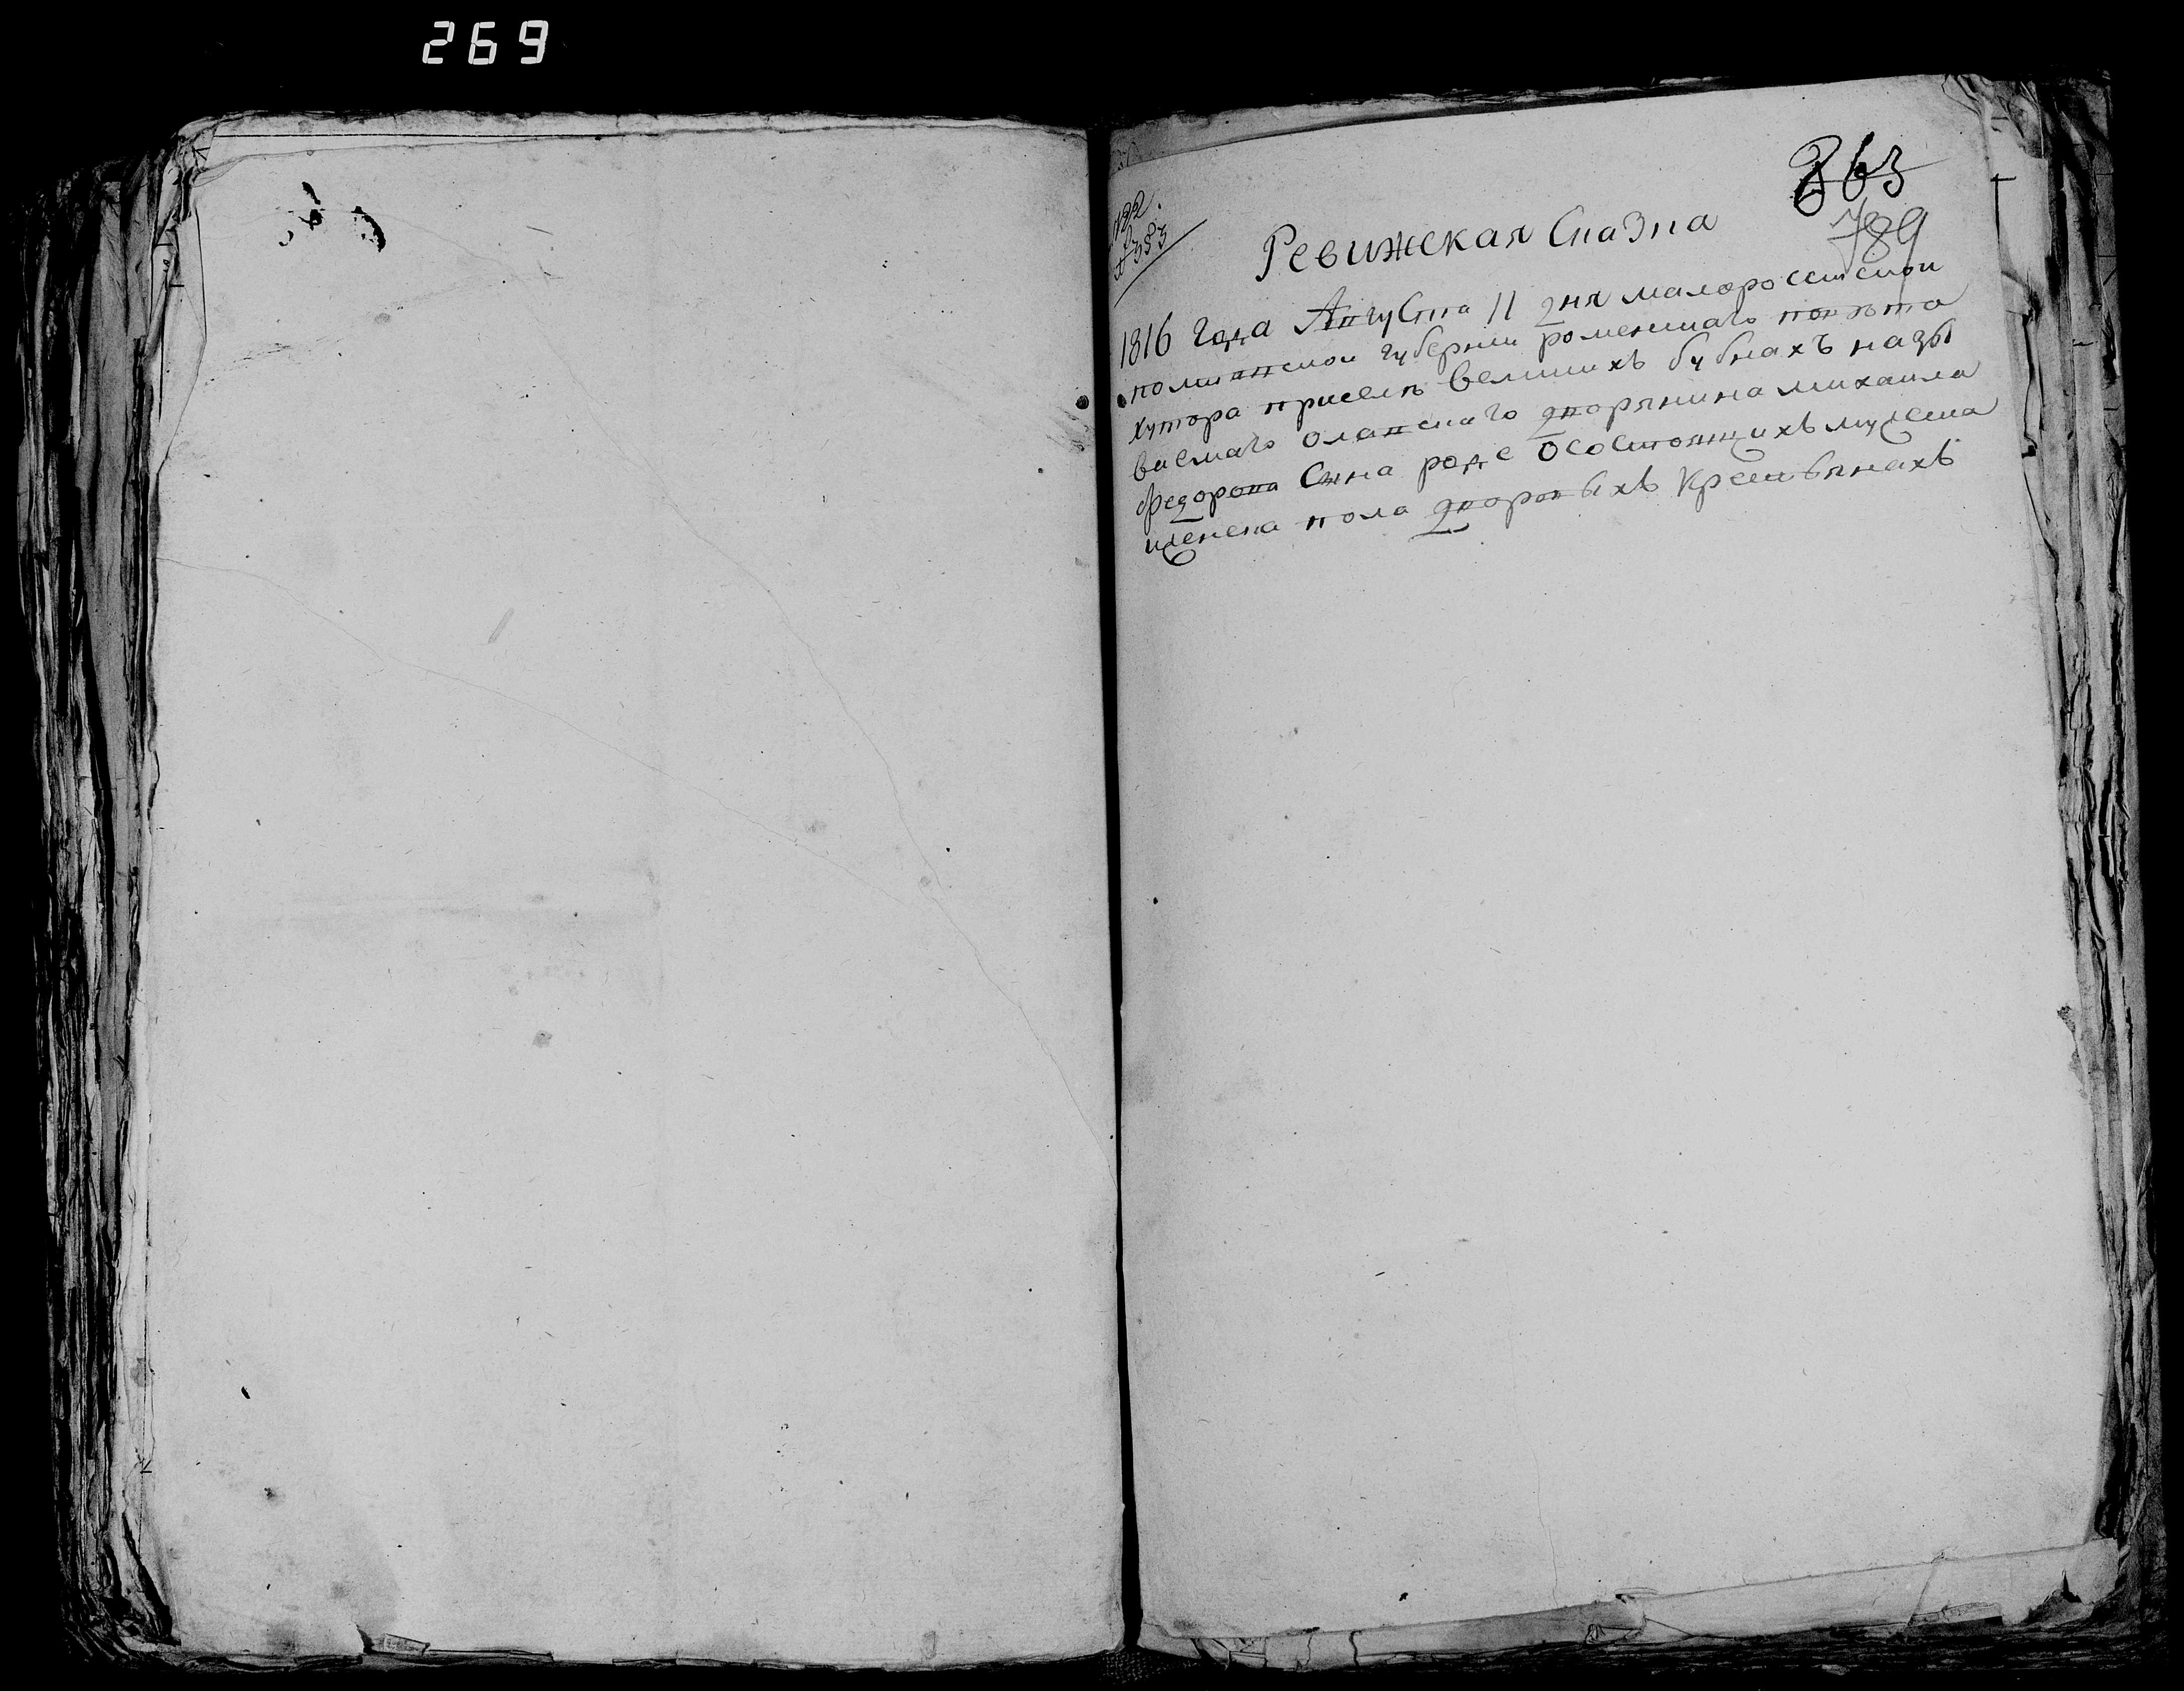 269
863
789
№ 353
Ревижская Сказка
1816 года Августа 11 дня малоросийской
полтавской губернии роменскаго повѣта
хутора приселѣ великихъ бубнахъ назы
ваемаго
дворянина михаила
федорова Сина
осостоящихъ мужеска
иженска пола дворовыхъ крестьянахъ